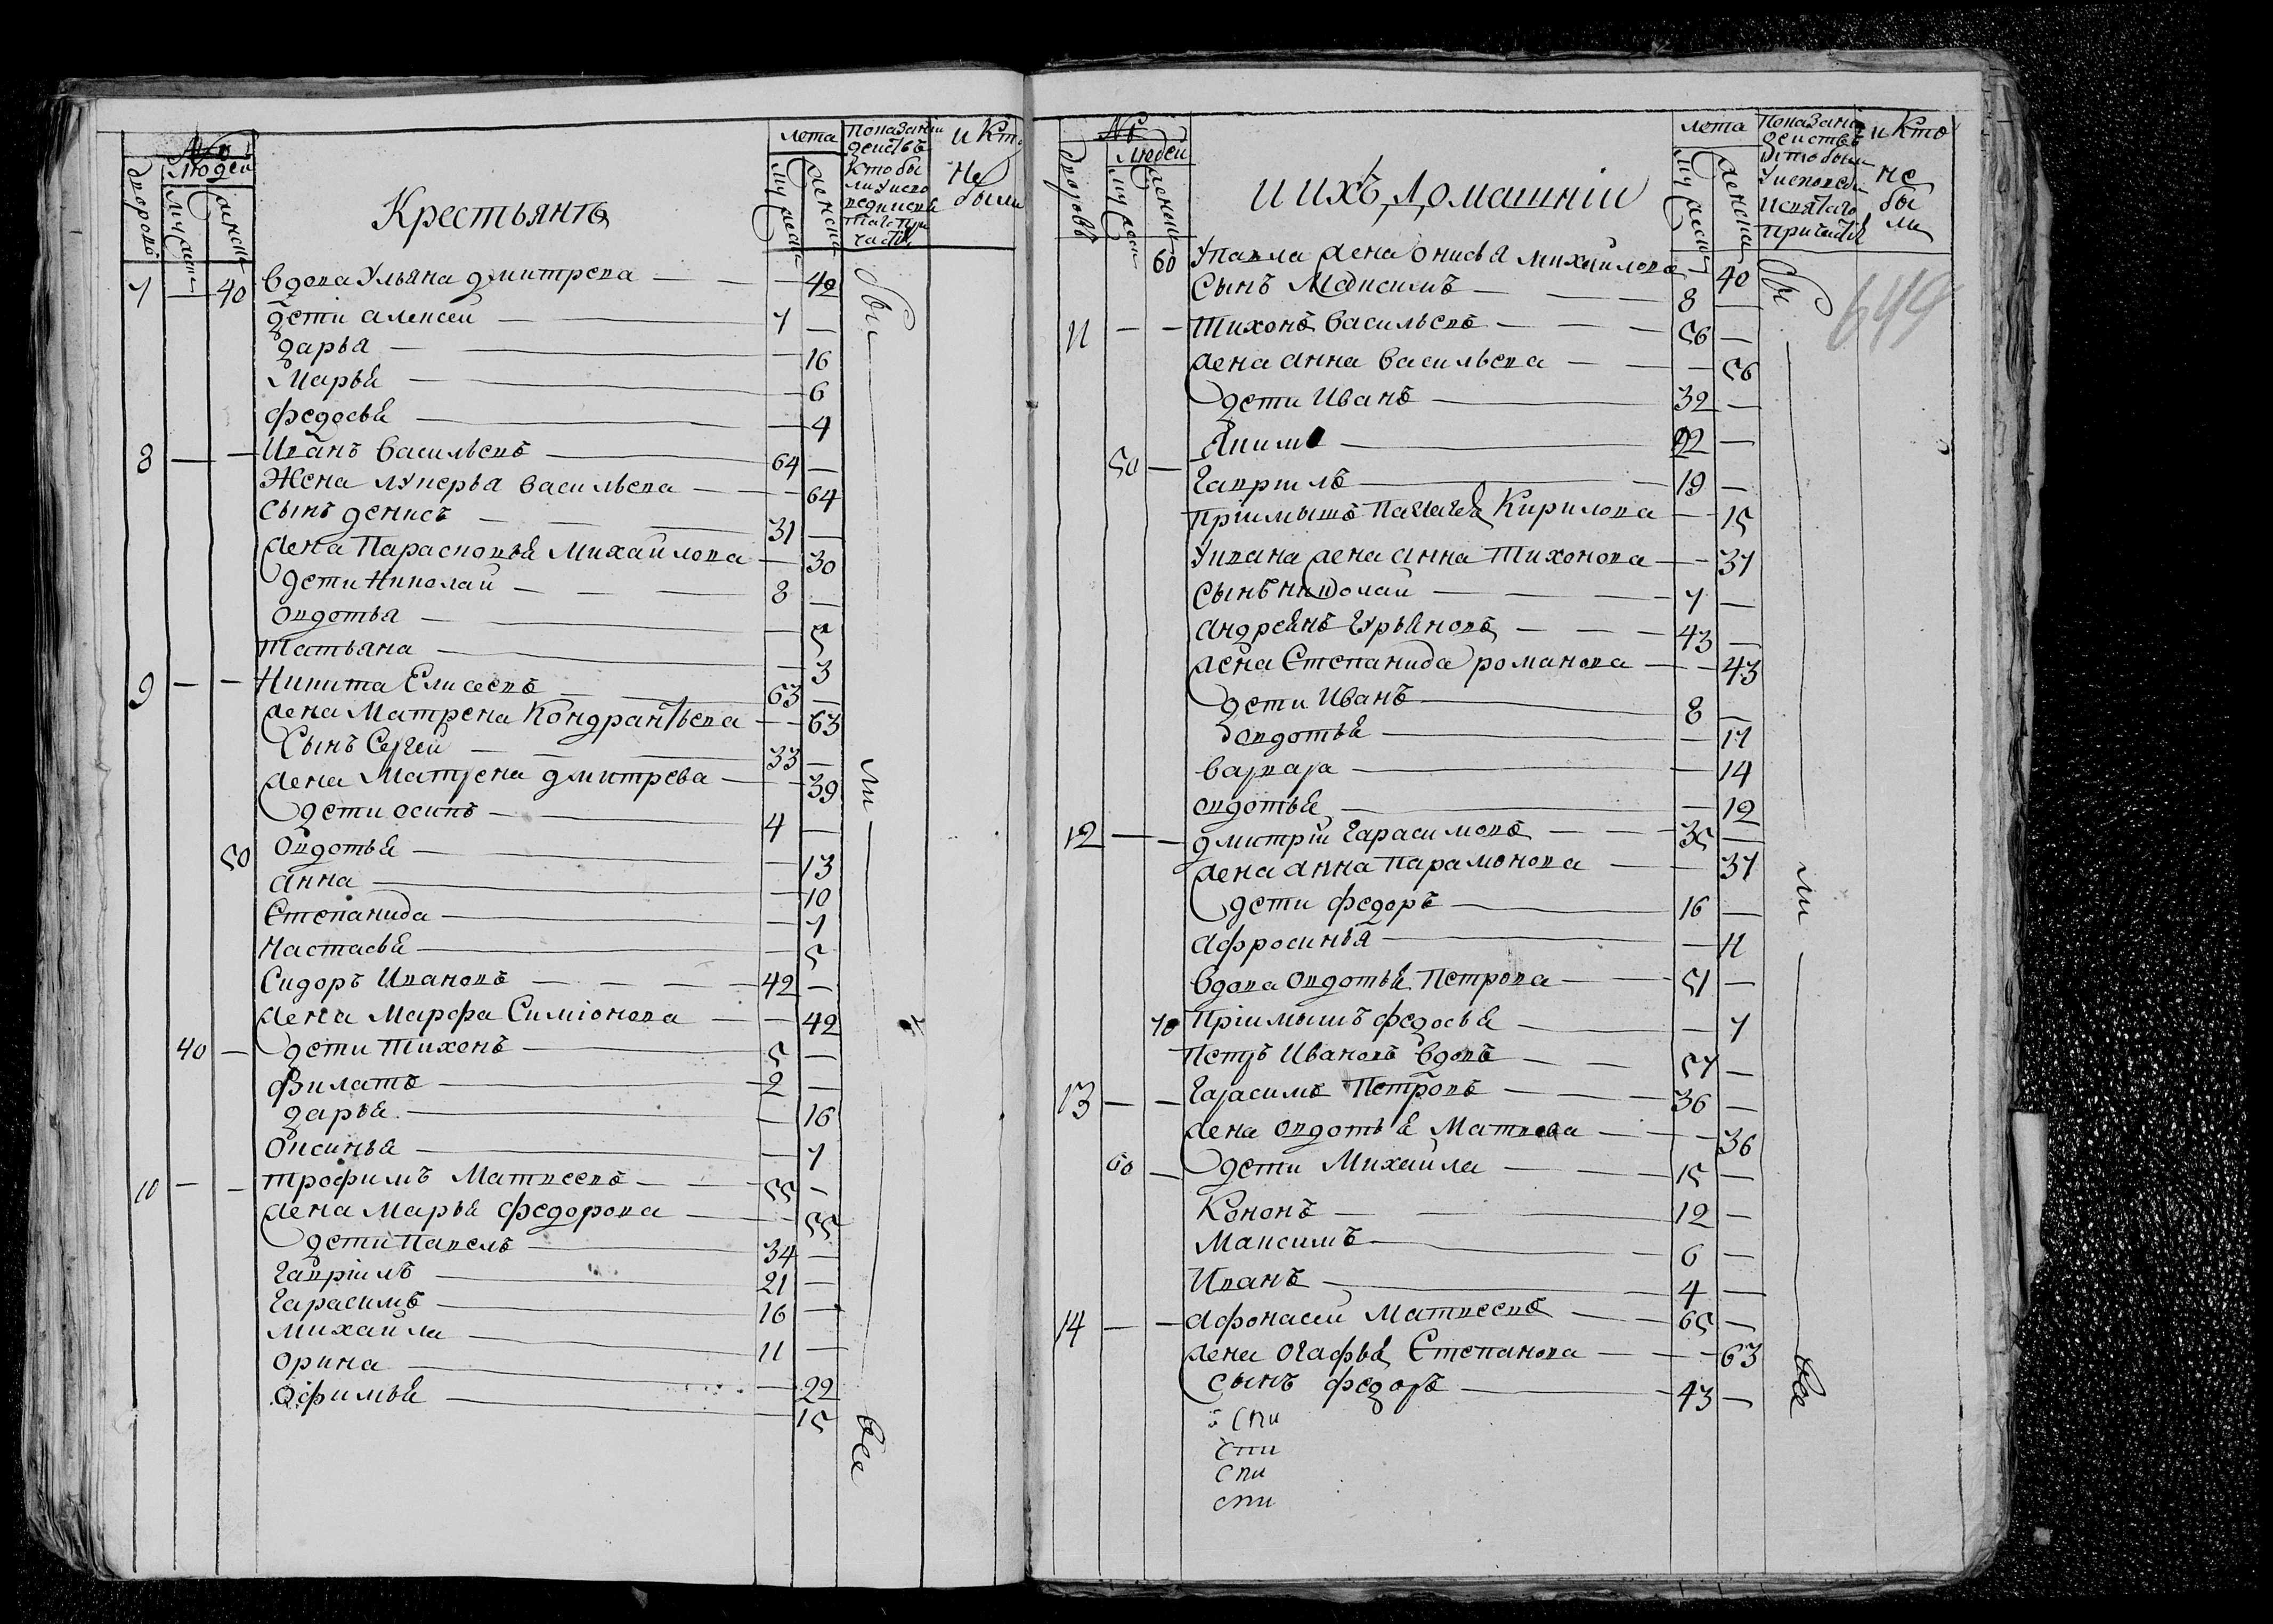 №
Людей
дворовъ
муска
женска
Крестьянѣ
лета
муска
женска
показаніи
действъ
кто бы
ли у испо
ведии и свя
таго при
части
и кто
не
были
7 — 40 вдова Ульяна дмитрева — — 40
дети алексеи — 7 —
дарья — — 16
Марья — — 6
федосья — — 4
8 — — Иванъ васильевъ — 64 —
Жена лукерья васильева — — 64
сынъ денисъ — 31 —
жена Парасковья Михаилова — — 30
дети Николаи — 8 —
овдотья — — 5
татьяна — — 3
9 — — Никита Елисеевъ — 63 —
жена Матрена Кондратьева — — 63
Сынъ Сергеи — 33 —
жена Матрена дмитрева — — 39
дети осипъ — 4 —
50 Овдотья — — 13
анна — — 10
Степанида — — 7
Настасья — — 5
Сидоръ Ивановъ — 42 —
жена Марфа Симіонова — — 42
40 — дети тихонъ — 5 —
филатъ — 2 —
дарья — — 16
Оксинья — — 7
10 — — трофимъ Матвеевъ — 55 —
жена Марья федорова — — 55
дети Павелъ — 34 —
Гавріилъ — 21 —
Гарасимъ — 16 —
михаила — 11 —
орина — — 22
офимья — — 15
бы
ли
все
№
Людей
дворовъ
муска
женска
и ихъ домашніи
лета
муска
женска
показани
действъ
кто были
у исповеди
и святаго
причастья
и кто
не
бы
ли
649
60 У павла жена Онисья михаилова — — 40
Сынъ Максимъ — 8 —
11 — — Тихонъ васильевъ — 56 —
жена анна васильева — — 56
дети Иванъ — 32 —
50 — Якимъ — 22 —
Гавриилъ — 19 —
пріимышъ Палагея Кирилова — — 15
У ивана жена анна Тихонова — — 37
сынъ николаи — 7 —
андреянъ Гурьяновъ — 43 —
жена Степанида романова — — 43
дети Иванъ — 8 —
овдотья — — 17
варвара — — 14
овдотья — — 12
12 — — дмитріи Гарасимовъ — 35 —
жена анна парамонова — — 37
дети федоръ — 16 —
афросинья — — 11
вдова овдотья Петрова — 51 —
70 Пріимышъ федосья — — 7
Петръ Ивановъ вдовъ — 57 —
13 — — Гарасимъ Петровъ — 36 —
жена овдотья Матвева — — 36
60 — дети Михаила — 15 —
Кононъ — 12 —
Максимъ — 6 —
Иванъ — 4 —
14 — — афонасеи Матвеевъ — 65 —
жена огафья Степанова — — 63
сынъ федоръ — 43 —
бы
ли
все